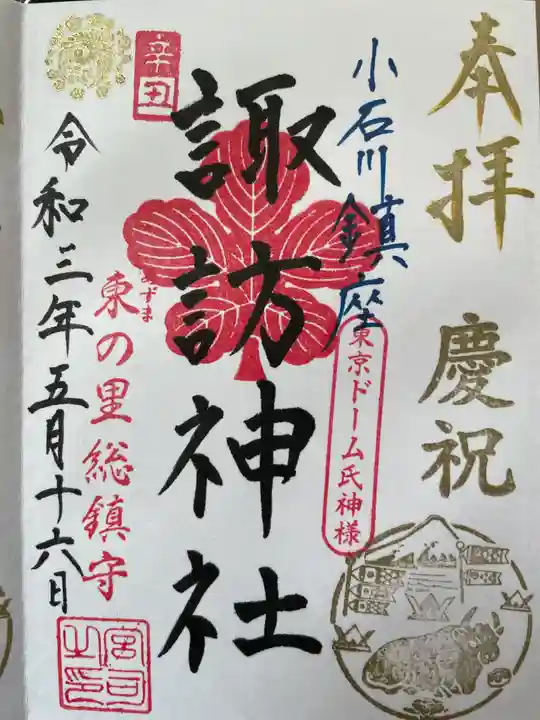 奉拝 慶祝
小石川鎮座
東京ドーム氏神様
諏訪神社
辛丑
東の里総鎮守
あずま
令和三年五月十六日
宮司之印